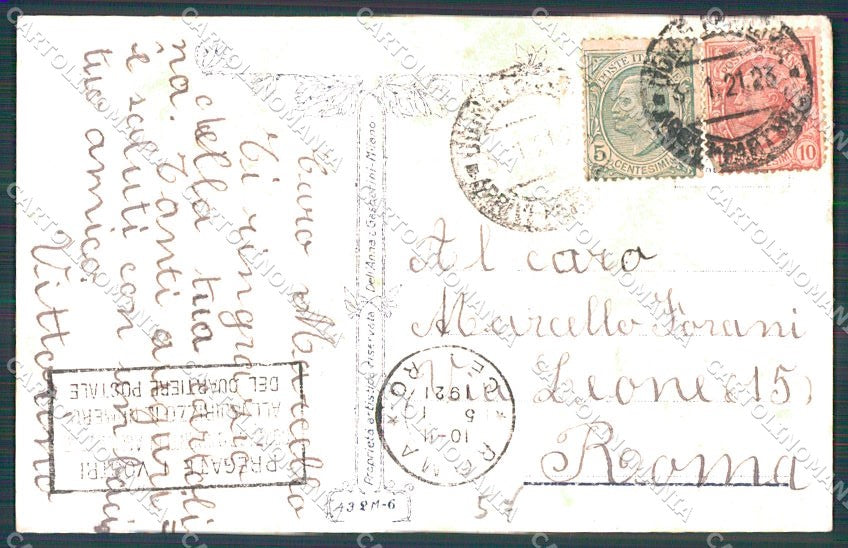 Caro Marcello
Ti ringrazio
della tua cartoli
na. Tanti auguri
e saluti con un bacio
tuo amico
Vittorino
Al caro
Marcello Forani
Via Leone (15)
Roma
POSTE ITALIANE
5
CENTESIMI
10
1.21.23
Proprietà artistica riservata
Dell'Anna e Gasparini - Milano
432 M-6
ROMA
CENTRO
10-11
5 1
1921
PREGATE I VOSTRI
ALL'INDIRIZZO IL NUMERO
DEL QUARTIERE POSTALE
5-
CARTOLINOMANIA